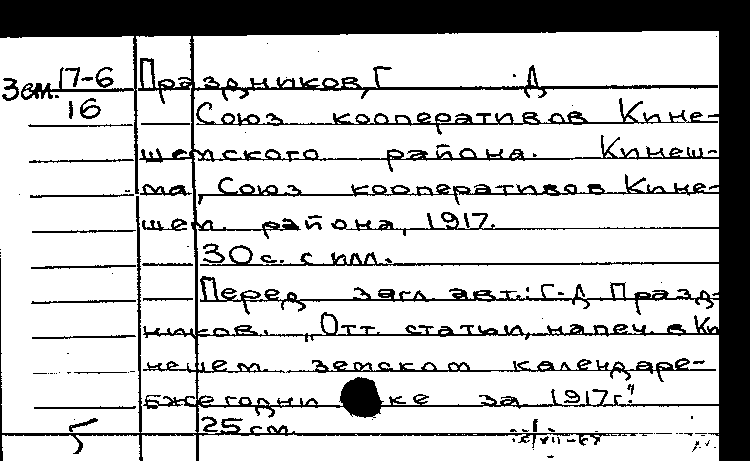 Зем. 17-6 Праздников, Г Д
16 Союз кооперативов Кине-
шемского района. Кинеш-
ма, Союз кооперативов Кине-
шем. района, 1917.
30 с. с илл.
Перед загл. авт.: Г-Д Празд-
ников. „Отт. статьи, напеч. в Ки
нешем. земском календаре-
Ежегодни ке за 1917г."
25 см.